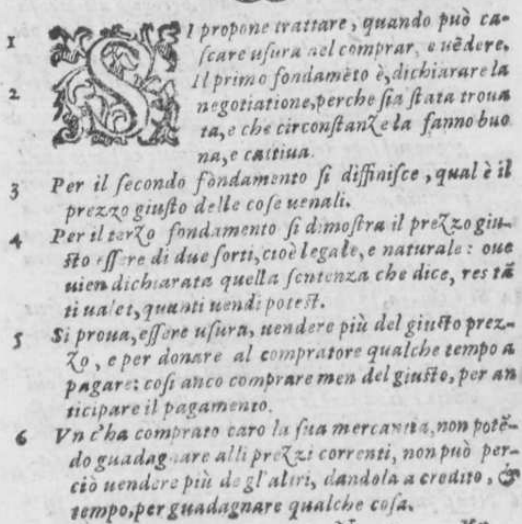 1 SI propone trattare, quando può ca-
ſcare uſura nel comprar, e uẽdere.
2 Il primo fondamẽto è, dichiarare la
negotiatione, perche ſia ſtata troua
ta, e che circonſtanze la fanno buo
na, e cattiua.
3 Per il ſecondo fondamento ſi diffiniſce, qual è il
prezzo giuſto delle coſe uenali.
4 Per il terzo fondamento ſi dimoſtra il prezzo giu-
ſto eſſere di due ſorti, cioè legale, e naturale: oue
uien dichiarata quella ſentenza che dice, res tã
ti ualet, quanti uendi poteſt.
5 Si proua, eſſere uſura, uendere più del giuſto prez-
zo, e per donare al compratore qualche tempo a
pagare: coſi anco comprare men del giuſto, per an
ticipare il pagamento.
6 Vn c'ha comprato caro la ſua mercantia, non potẽ-
do guadagnare alli prezzi correnti, non può per-
ciò uendere più de gl'altri, dandola a credito, &
tempo, per guadagnare qualche coſa.